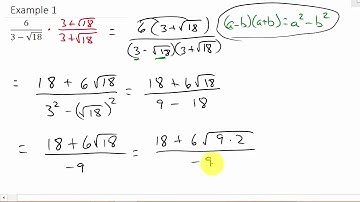 Example 1
6/(3 − √18) · (3 + √18)/(3 + √18) = 6(3 + √18)/((3 − √18)(3 + √18)) (a−b)(a+b) = a² − b²
= (18 + 6√18)/(3² − (√18)²) = (18 + 6√18)/(9 − 18)
= (18 + 6√18)/(−9) = (18 + 6√(9 · 2))/(−9)